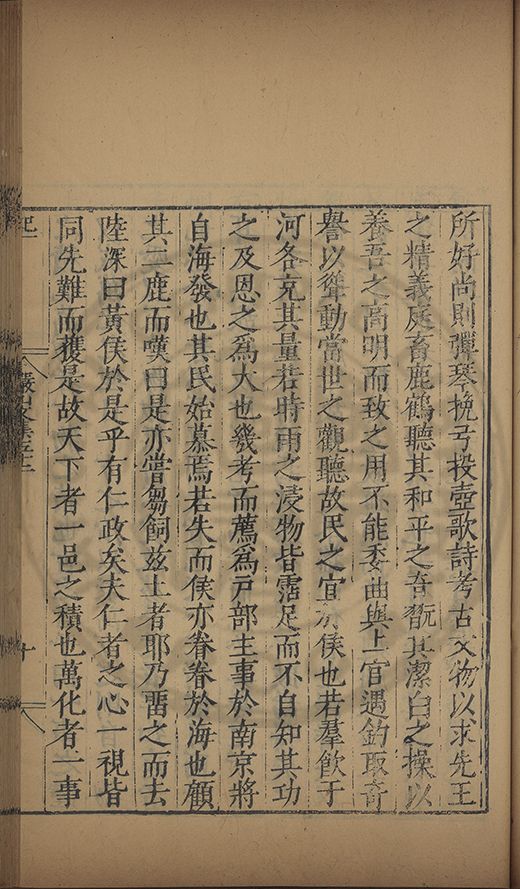 所好尚則彈琴挽弓投壺歌詩考古文物以求先王
之精義庭畜鹿鶴聽其和平之音翫其潔白之操以
養吾之高明而致之用不能委曲與上官遇釣取奇
譽以聳動當世之觀聽故民之宜於侯也若羣飲于
河各充其量若時雨之浸物皆霑足而不自知其功
之及恩之爲大也幾考而薦爲戸部主事於南京將
自海發也其民始慕焉若失而侯亦眷眷於海也顧
其二鹿而嘆曰是亦嘗芻飼兹土者耶乃畱之而去
陸深曰黃侯於是乎有仁政矣夫仁者之心一視皆
同先難而穫是故天下者一邑之積也萬化者一事